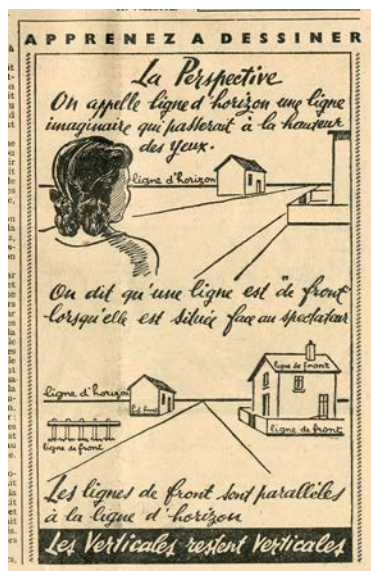 APPRENEZ A DESSINER
La Perspective
On appelle ligne d'horizon une ligne
imaginaire qui passerait à la hauteur
des yeux.
ligne d'horizon
On dit qu'une ligne est "de front"
lorsqu'elle est située face au spectateur
ligne de front
ligne d'horizon
ligne de front
ligne de front
Les lignes de front sont parallèles
à la ligne d'horizon
Les Verticales restent Verticales